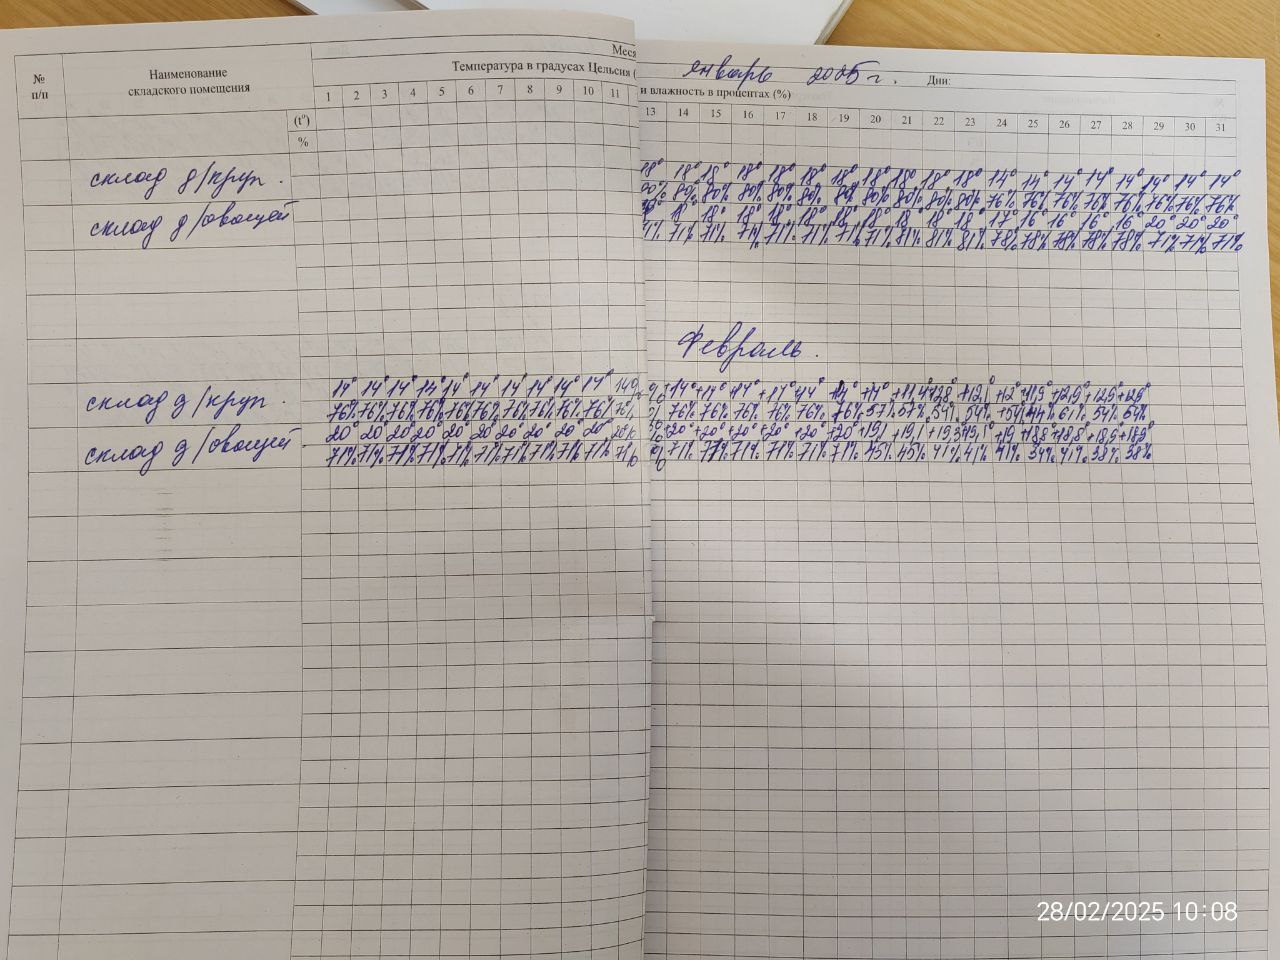 Меся
январь 2025 г. Дни:
№ п/п
Наименование складского помещения
Температура в градусах Цельсия (
и влажность в процентах (%)
1 2 3 4 5 6 7 8 9 10 11
13 14 15 16 17 18 19 20 21 22 23 24 25 26 27 28 29 30 31
(t°)
%
склад д/круп.
18° 18° 18° 18° 18° 18° 18° 18° 18° 18° 18° 14° 14° 14° 14° 14° 14° 14° 14°
80% 80% 80% 80% 80% 80% 80% 80% 80% 80% 76% 76% 76% 76% 76% 76% 76% 76%
склад д/овощей
18° 18° 18° 18° 18° 18° 18 18 18 17° 16° 16° 16° 16° 20° 20° 20°
71% 71% 71% 71% 71% 71% 71% 81% 81% 81% 78% 78% 78% 78% 78% 71% 71% 71%
Февраль.
склад д/круп.
14° 14° 14° 14° 14° 14° 14° 14° 14° 14°
+14° +14° +14° +14° +14° +14° +14°
76% 76% 76% 76% 76% 76% 76% 76% 76% 76%
76% 76% 76% 76% 76% 76% 57% 57% 54% 54%
склад д/овощей
20° 20° 20° 20° 20° 20° 20° 20° 20° 20°
+20° +20° +20° +20° +20° +20° +19,1 +19,1
71% 71% 71% 71% 71% 71% 71% 71% 71% 71%
71% 71% 71% 71% 71% 71% 45% 45% 41% 41% 41% 34% 41% 38% 38%
28/02/2025 10:08